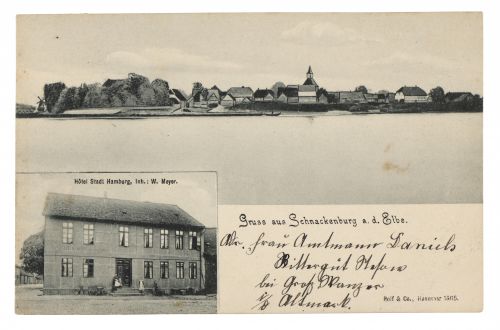 Hôtel Stadt Hamburg, Inh.: W. Meyer.
Gruss aus Schnackenburg a. d. Elbe.
Adr. Frau Amtmann Daniels
Rittergut
bei Groß
Altmark.
Rolf & Co., Hannover